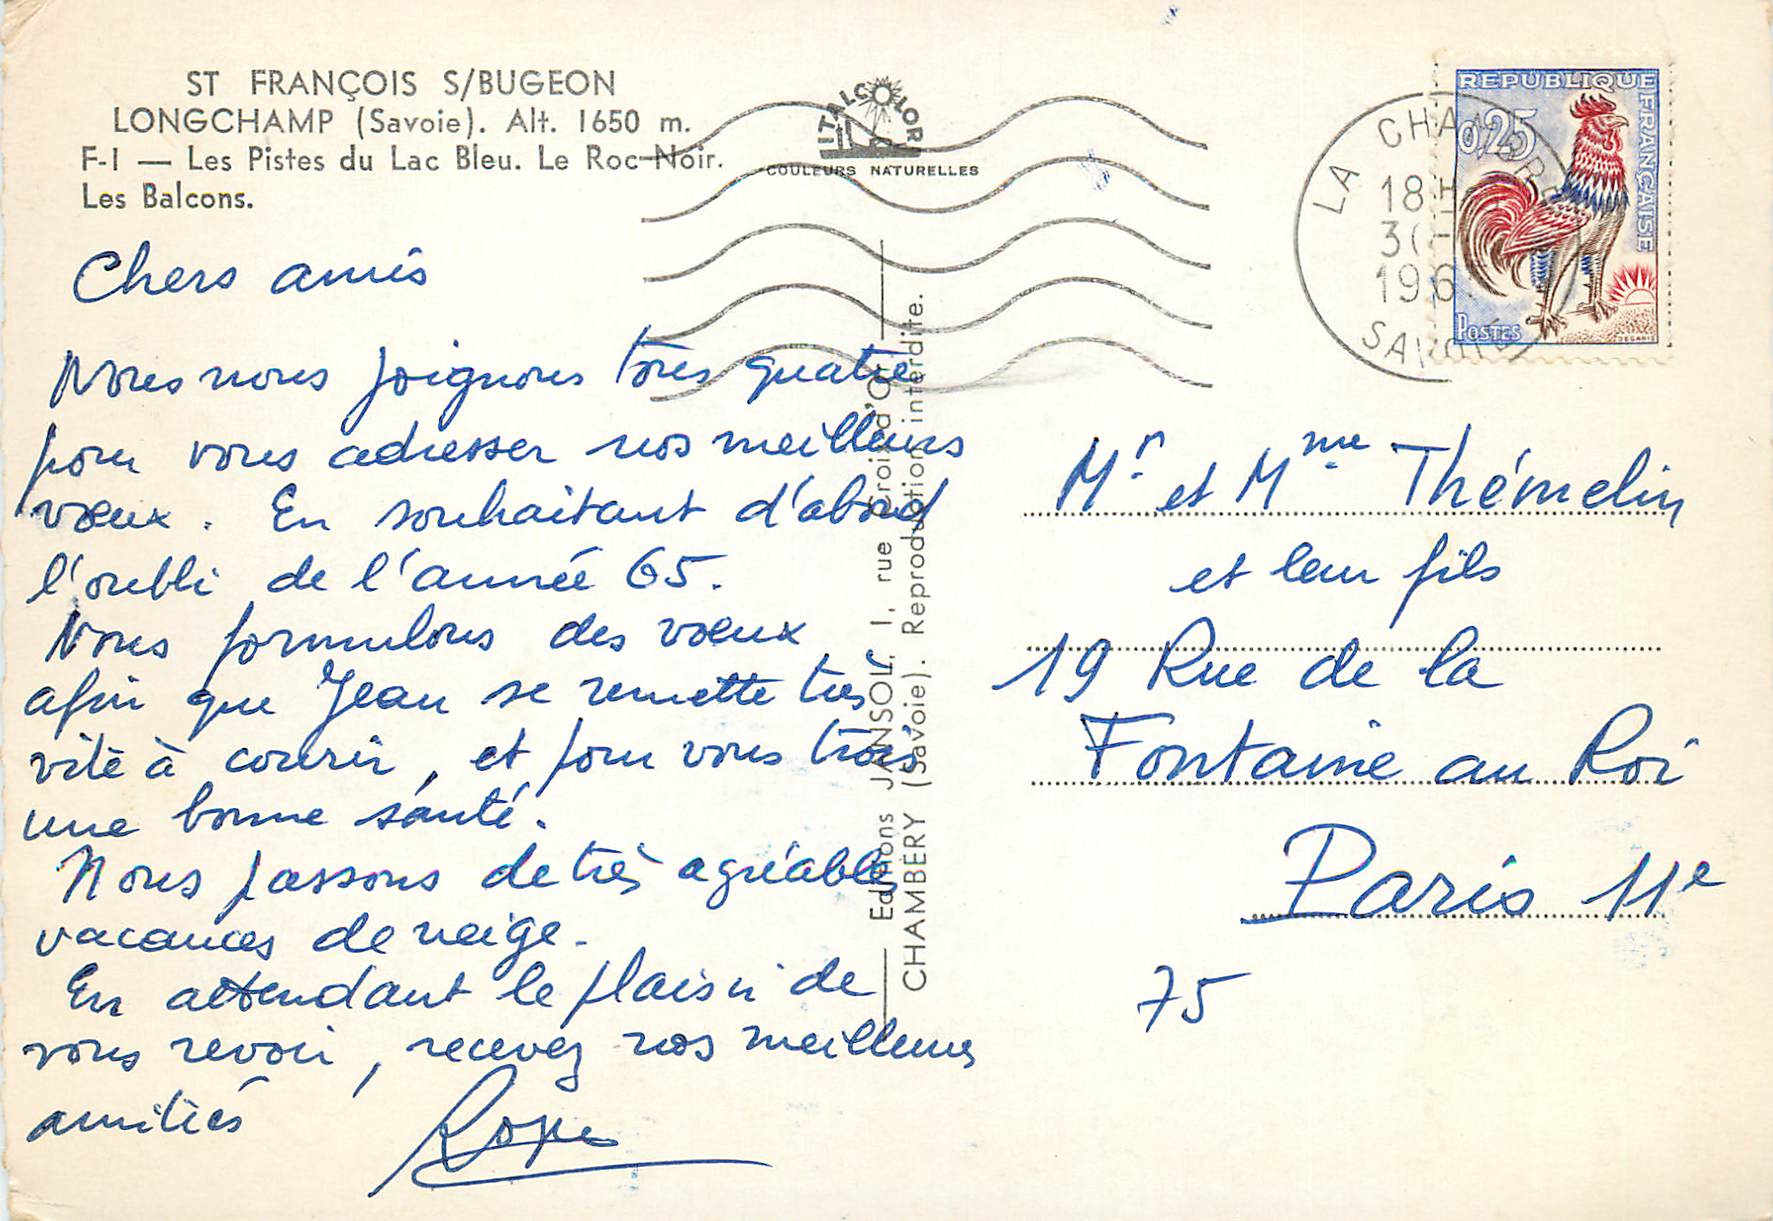 ST FRANÇOIS S/BUGEON
LONGCHAMP (Savoie). Alt. 1650 m.
F-I — Les Pistes du Lac Bleu. Le Roc-Noir.
Les Balcons.
Chers amis
Nous nous joignons tous quatre
pour vous adresser nos meilleurs
vœux. En souhaitant d'abord
l'oubli de l'année 65.
Nous formulons des vœux
afin que Jean se remette très
vite à courir, et pour vous trois
une bonne santé.
Nous passons de très agréables
vacances de neige.
En attendant le plaisir de
vous revoir, recevez nos meilleures
amitiés
ITALCOLOR
COULEURS NATURELLES
Editions JANSOL, 1, rue Croix d'Or
CHAMBÉRY (Savoie). Reproduction interdite.
LA CHAMBRE
18H
196
SAVOIE
REPUBLIQUE FRANÇAISE
0,25
POSTES
DECARIS
Mr et Mme Thémelin
et leur fils
19 Rue de la
Fontaine au Roi
Paris 11e
75